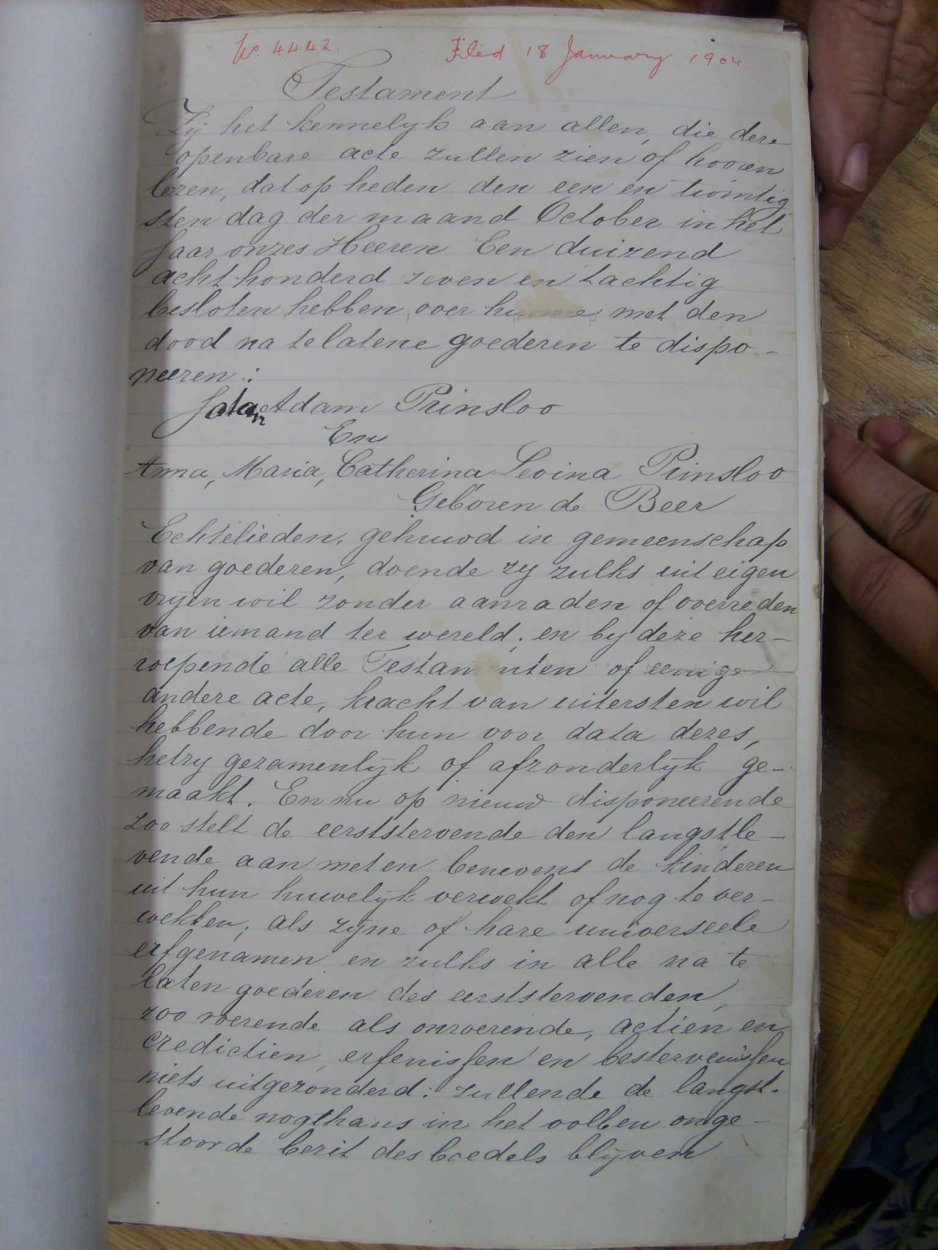 No. 4442. Filed 18 January 1904
Testament
Zij het kennelyk aan allen, die deze
openbare acte zullen zien of hooren
lezen, dat op heden den een en twintig
sten dag der maand October in het
Jaar onzes Heeren Een duizend
acht honderd zeven en tachtig
besloten hebben over hunne met den
dood na telatene goederen te dispo -
neeren :
Adam Prinsloo
En
Anna, Maria, Catherina Levina Prinsloo
Geboren de Beer
Echtelieden, gehuwd in gemeenschap
van goederen, doende zy zulks uit eigen
vryen wil zonder aanraden of overreden
van iemand ter wereld; en by deze her-
roepende alle Testamenten of eenige
andere acte, kracht van uitersten wil
hebbende door hun voor data dezes,
hetzy gezamenlyk of afzonderlyk ge-
maakt. En nu op nieuw disponeerende
zoo stelt de eerststervende den langstle -
vende aan met en benevens de kinderen
uit hun huwelyk verwekt of nog te ver-
wekken, als zyne of hare universeele
erfgenamen en zulks in alle na te
laten goederen des eerststervenden,
zoo roerende als onroerende, actien en
credictien, erfenissen en besterven̄issen
niets uitgezonderd: zullende de langst-
levende nogthans in het vollen onge -
stoorde bezit des boedels blyven